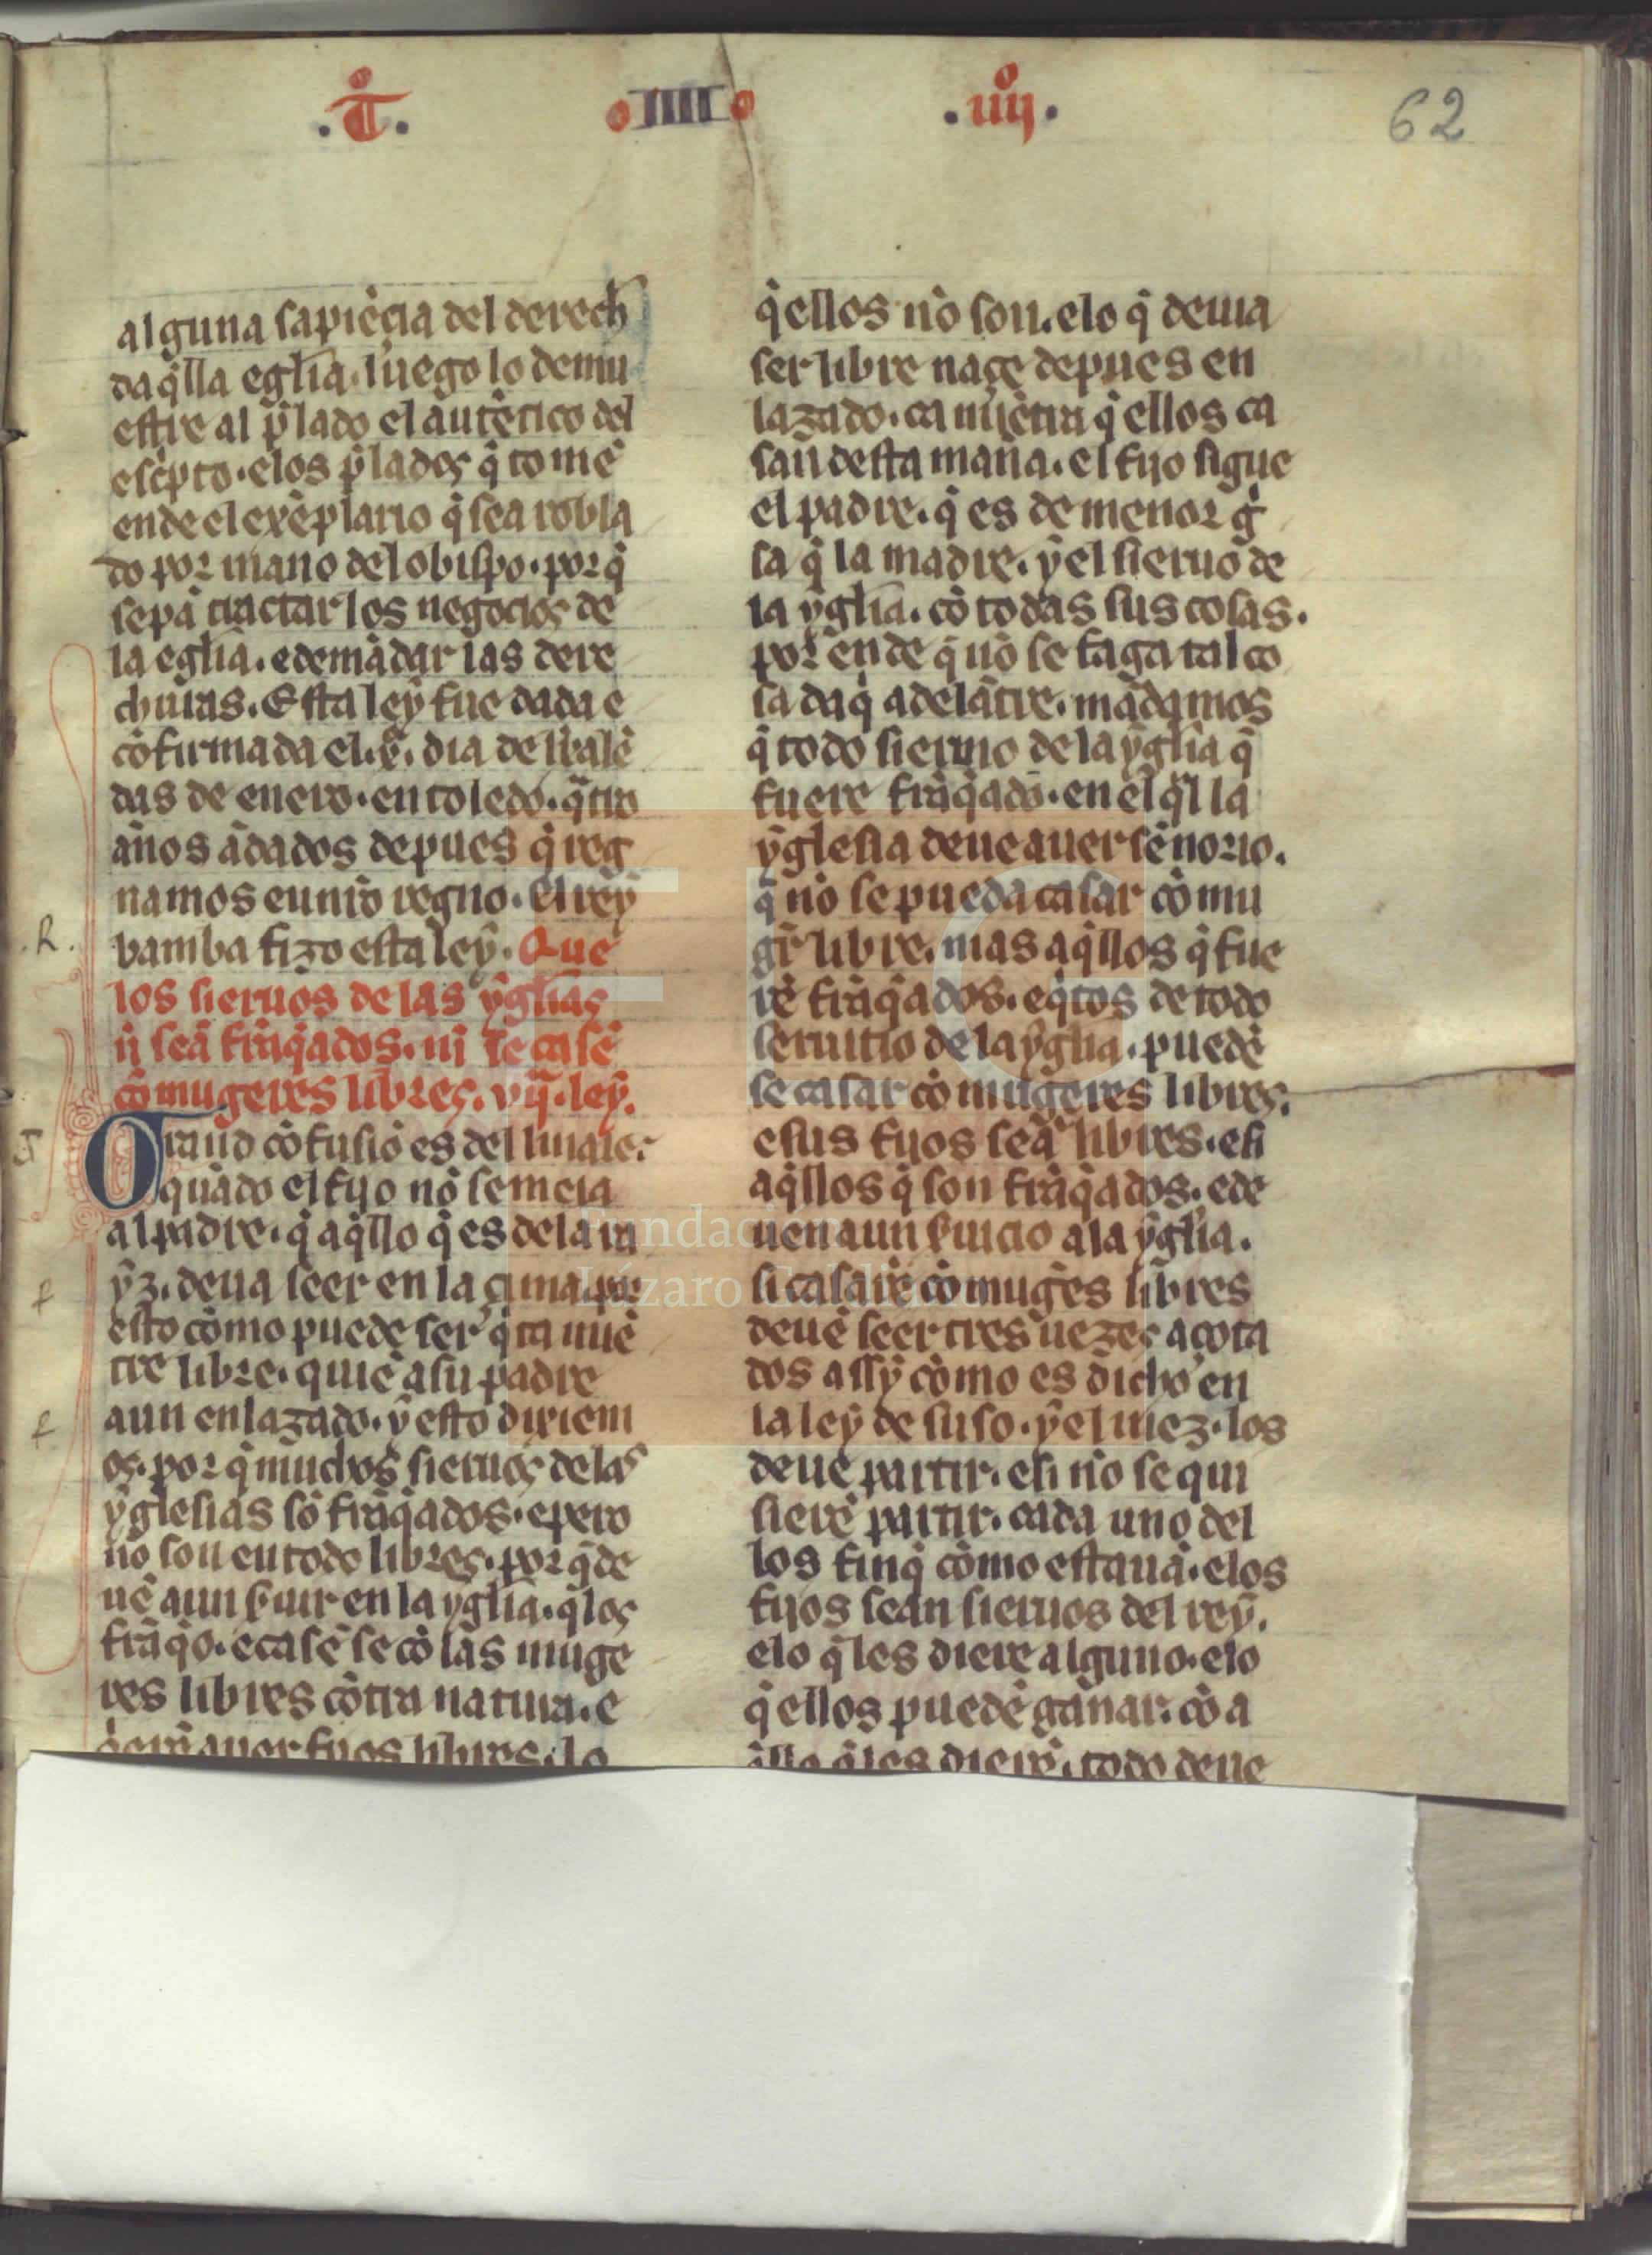 .t̊. IIII .iiij.
62
alguna sapiẽcia del derech
daq̃lla eglĩa. luego lo demu
estre al p̃lado el autẽtico del
esc̃pto. elos p̃lados q̃ tomẽ
ende el exẽplario q̃ sea robla
do por mano del obispo. porq̃
sepã tractar los negocios de
la eglĩa. edemãdar las dere
churas. Esta ley fue dada e
cõfirmada el .x. dia de kalẽ
das de enero. en toledo. q̃tro
años ãdados depues q̃ reg
namos en nr̃o regno. El rey
bamba fizo esta ley. Que
los sieruos de las yglĩas
ñ seã frãq̃ados. nj se casẽ
cõ mugeres libres. vij. ley.
Grand cõfusiõ es del linaie.
quãdo el fijo nõ semeia
al padre. q̃ aq̃llo q̃ es dela ra
yz. deua seer en la cima. por
esto cõmo puede ser q̃ ta nuẽ
tre libre. quiẽ a su padre
aun enlazado. y esto dixiem
os. por q̃ muchos sieruos de las
yglesias sõ frãq̃ados. epero
nõ son en todo libres. por q̃ de
uẽ aun s̃uir en la yglĩa. q̃ los
frãq̃o. ecasẽ se cõ las muge
res libres cõtra natura. e
q̃rẽ auer fijos libres. lo
q̃ ellos nõ son. elo q̃ deuia
ser libre naçe depues en
lazado. ca miẽtra q̃ ellos ca
san desta mañã. el fijo sigue
el padre. q̃ es de menor g̃
sa q̃ la madre. y el sieruo de
la yglĩa. cõ todas sus cosas.
por ende q̃ nõ se faga tal co
sa daq̃ adelãtre. mãdamos
q̃ todo sieruo de la yglĩa q̃
fuere frãq̃ado. en el q̃l la
yglesia deue auer señorio.
q̃ nõ se pueda casar cõ mu
gr̃ libre. mas aq̃llos q̃ fue
rẽ frãq̃ados. eq̃tos de todo
seruitio de la yglĩa. puedẽ
se casar cõ mugeres libres.
esus fijos seã libres. esi
aq̃llos q̃ son frãq̃ados. ede
uen aun s̃uicio a la yglĩa.
si casarẽ cõ mug̃es libres
deuẽ seer tres uezes açota
dos assy cõmo es dicho en
la ley de suso. y el iuez. los
deue partir. esi nõ se qui
sierẽ partir. cada uno del
los finq̃ cõmo estauã. elos
fijos sean sieruos del rey.
elo q̃ les diere alguno. elo
q̃ ellos puedẽ gãnar. cõ a
q̃llo q̃ les dierẽ. todo deue
Fundación
Lázaro Galdiano